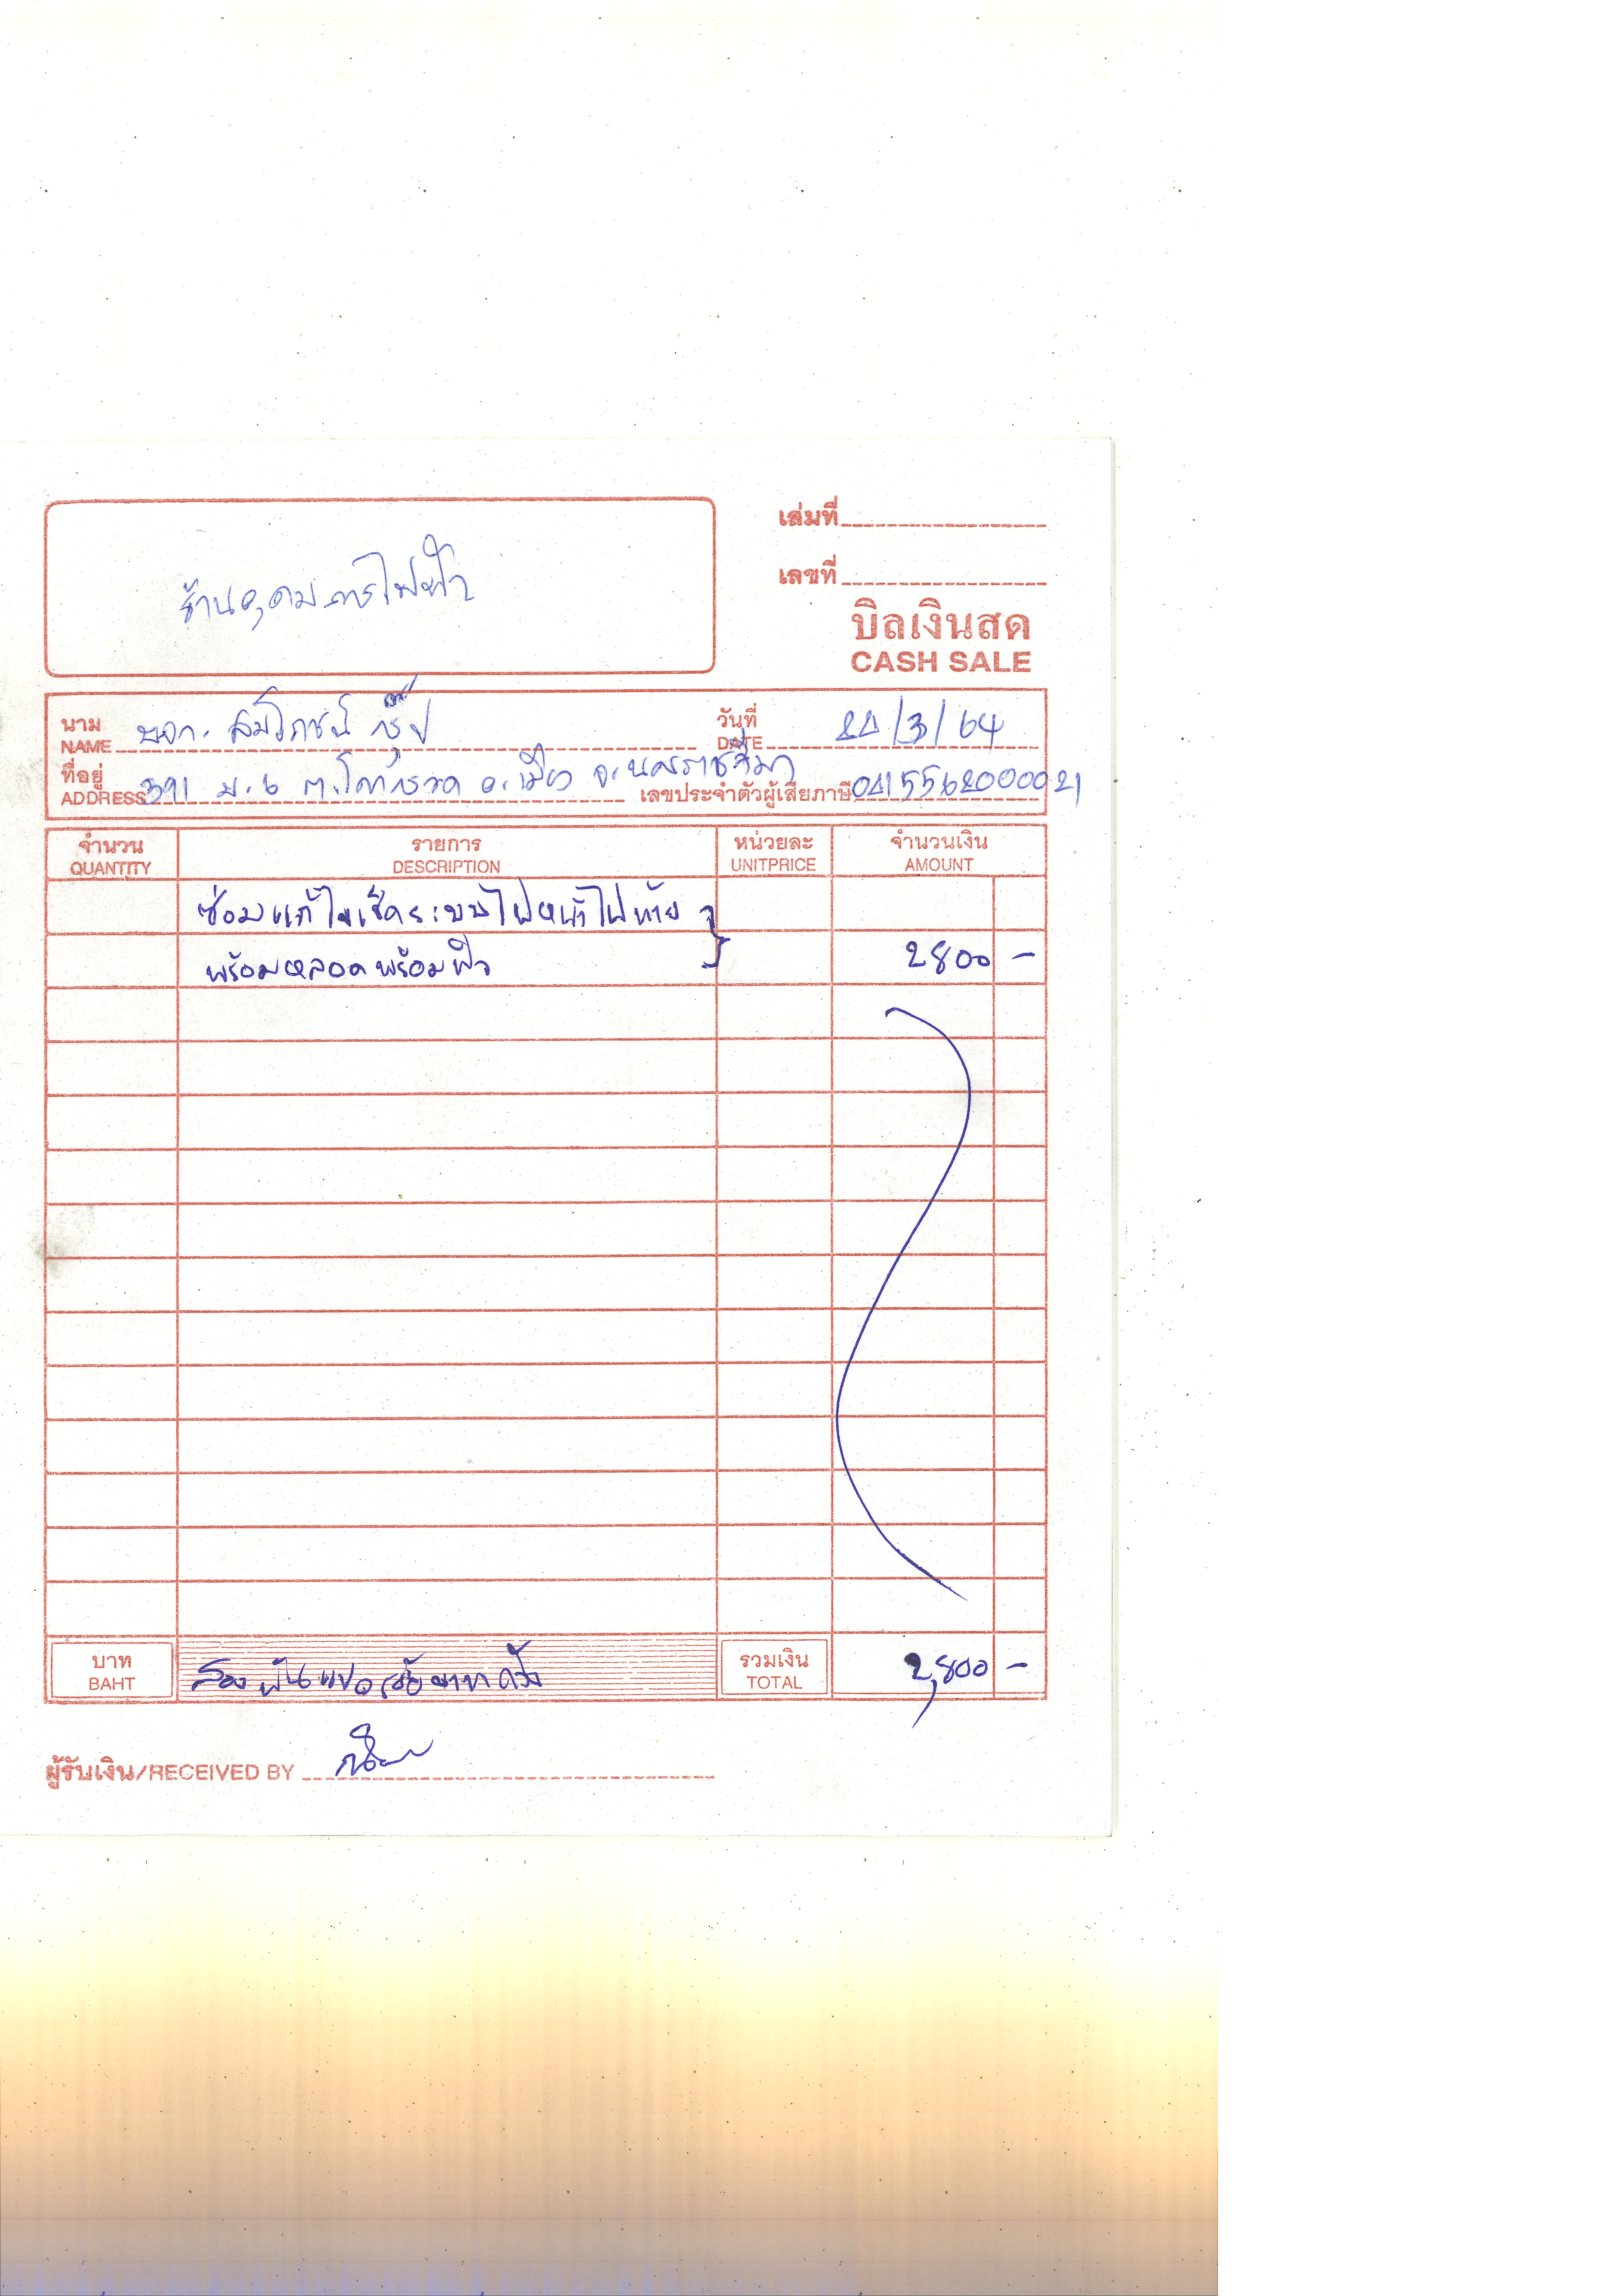 เล่มที่
เลขที่
ร้านอุดมการไฟฟ้า
บิลเงินสด
CASH SALE
นาม หจก. สมโภชน์ กรุ๊ป วันที่ /3/64
NAME DATE
ที่อยู่ 391 ม.6 ต.โคกกรวด อ.เมือง จ.นครราชสีมา
ADDRESS เลขประจำตัวผู้เสียภาษี
จำนวน รายการ หน่วยละ จำนวนเงิน
QUANTITY DESCRIPTION UNITPRICE AMOUNT
ซ่อมแก้ไขเช็คระบบไฟหน้าไฟท้าย
พร้อมหลอดพร้อมฟิว 2800 -
บาท สองพันแปดร้อยบาทถ้วน รวมเงิน 2,800 -
BAHT TOTAL
ผู้รับเงิน/RECEIVED BY